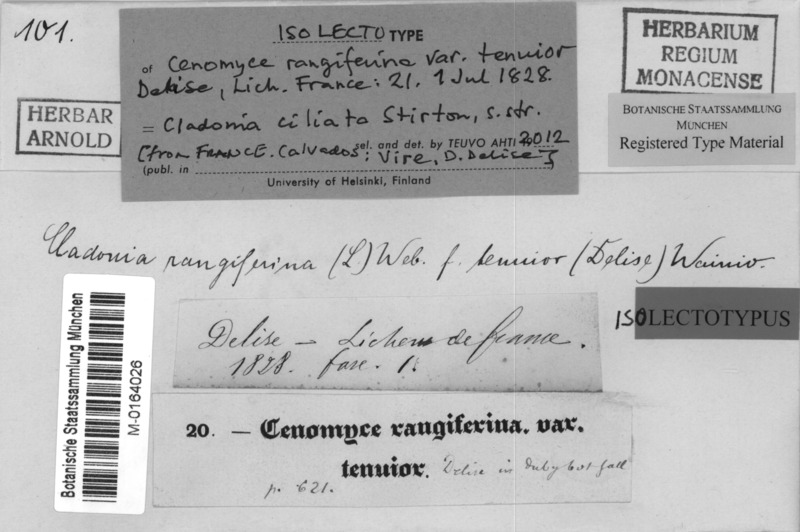 101.
ISO LECTO TYPE
of Cenomyce rangiferina var. tenuior
Delise, Lich. France: 21. 1 Jul 1828.
= Cladonia ciliata Stirton, s. str.
sel. and det. by TEUVO AHTI 2012
[from FRANCE. Calvados: Vire, D. Delise]
(publ. in
University of Helsinki, Finland
HERBARIUM
REGIUM
MONACENSE
HERBAR
ARNOLD
BOTANISCHE STAATSSAMMLUNG
MÜNCHEN
Registered Type Material
Cladonia rangiferina (L) Web. f. tenuior (Delise) Wainio.
ISO LECTOTYPUS
Delise – Lichens de france.
1828. fasc. 1.
20. — Cenomyce rangiferina. var.
tenuior. Delise in duby bot gall
p. 621.
Botanische Staatssammlung München
M-0164026